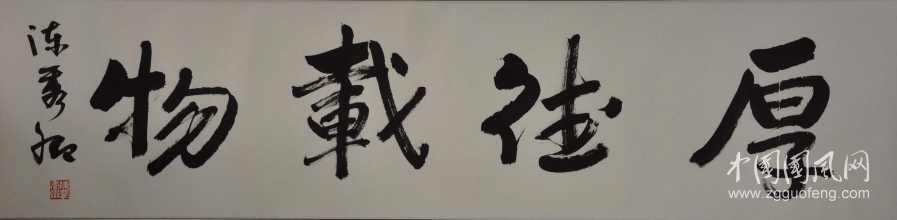 厚德載物
陈
中国国风网
www.zgguofeng.com